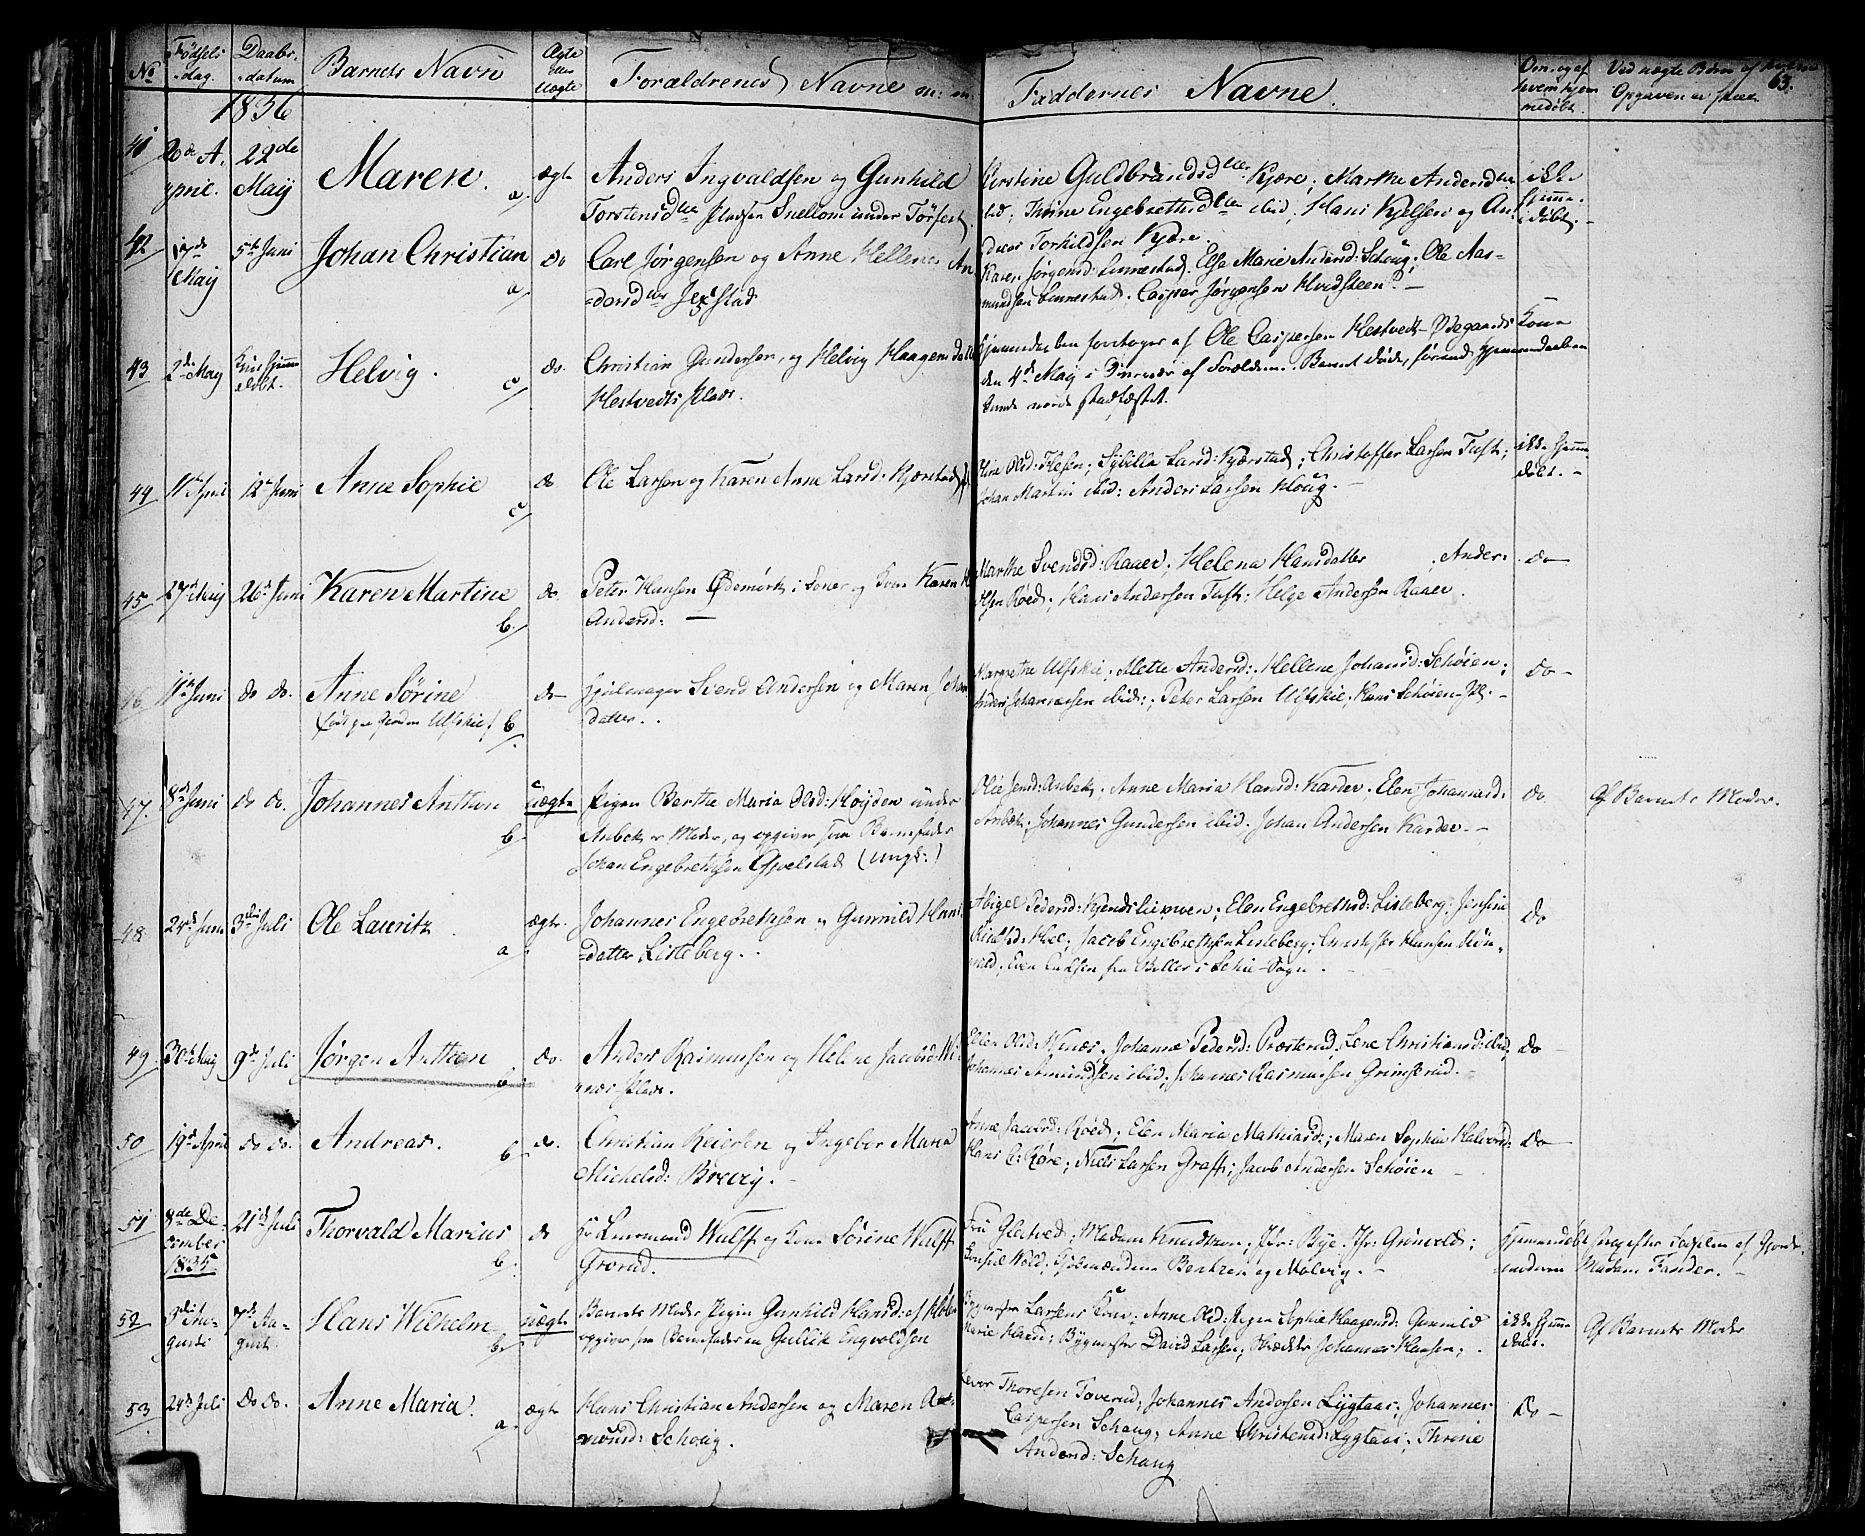 No Fødsels dag. Daabs datum Barnets Navn Ægte eller Uægte Forældrenes Navne m: m: Faddernes Navne. Om, og af hvem hjemmedøbt. Ved uægte Børn af hvem Opgaven er skeet 63.
1836
41 20de April 22de Maij Maren. a. ægte Anders Ingvaldsen og Gunhild
Torstensdtr Pladsen Snellom under Tørfest
Kirstine Guldbrandsdtr Kjære; Marthe Andersdtr
ibid; Thrine Engebrethsdtr ibid. Hans Kjelsen og An-
dreas Torkildsen Kjære.
ikke hjemmedøbt
42 17de Maij 5te Juni Johan Christian a do Carl Jørgensen og Anne Hellene An
dersdtr Jexstad
Karen Jørgensd: Linnestad. Else Marie Andersd: Schoug; Ole Aas-
mundsen Linnestad. Casper Jørgensen Hvidsteen
43 2de Maij Kun hjemmedøbt. Helvig. c do. Christian Gundersen, og Helvig Haagensdatter
Hestvedts Plads.
Hjemmedaaben foretoges af Ole Caspersens Hestvedt-Ødegaards Kone
den 4de Maij i Nærvær af Forældrene. Barnet døde, førend Hjemmedaaben
kunde vorde stadfæstet.
44 11te April 12te Juni Anne Sophie c do Ole Larsen og Karen Anne Larsd: Kjærstad
Oline Olsd: Hesen; Sybilla Larsd: Kjærstad; Christoffer Larsen Tuft;
Johan Martin ibid: Anders Larsen Houg. -
ikke hjemmedøbt. -
45 27de Maij 26de Juni Karen Martine b. do. Peter Hansen Ødemørk i Soner og Kone Karen
Andersd: -
Marthe Svendsd: Raaer; Helena Hansdatter Ander-
Røed; Hans Andersen Tuft; Helge Andersen Raaer.
do
46 11te Juni do do. Anne Sørine
(født paa Gaarden Ulfskie) b. do Hjulmager Svend Andersen og Maren Johan
datter.
Margrethe Ulfskie. Mette Andersd: Hellene Johansd: Schøien;
Anders Johannessen ibid:; Peter Larsen Ulfskie. Hans Schøien-Pl: -
do -
47. 8de Juni do do. Johannes Anthon b. c uægte Pigen Berthe Maria Olsd: Højden under
Anbek er Moder, og opgiver som Barnefader
Johan Engebrethsen Gjvelstad (Ungk:)
Olie Jensd: Anbek. Anne Maria Hansd: Karder. Elen Johannesd:
Anbek. Johannes Gundersen ibid. Johan Andersen Karder. -
do. Af Barnets Moder.
48 24de Juni 3die Juli Ole Lauritz. a ægte. Johannes Engebrethsen og Gunnild Hans
datter Listeberg.
Abigel Pedersd: Elen Engebrethsd: Listeberg; Jensine
Jacob Engebrethsen Listeberg; Christoffer Hansen
Even fra i Schie-Sogn.
do
49 30te Maij 9de Juli Jørgen Anthon b do. Anders Rasmussen og Helene Jacobsd: Wi
næs Plads.
Elen Olsd: Winæs. Johanne Pedersd: Præsterud; Lene Christiansd: ibid,
Johannes Amundsen ibid; Johannes Rasmussen Grimserud. -
do
50 19de April do do. Andreas. b do. Christian Reiersen og Ingebor Maria
Michelsd: Brevig. -
Anne Jacobsd: Røed; Elen Maria Mathiasd:; Maren Sophia Halvorsd:
Hans C: Røre; Niels Larsen Graff; Jacob Andersen Schøien -
do
51 8de December 1835 21de Juli Thorvald Marius b. do Hr Lieutnand Wulff og Kone Sørine Wulff
Grorud.
Fru Glatved; Madam Knudtzon; Jfr: Bye. Jfr: Grønvold;
Consul Wold; Kjøbmændene Berntzen og Mølvig. -
hjemmedøbt Madam Fander. -
52. 3die August 7de August Hans Wilhelm b. uægte Barnets Moder Pigen Gunhild Hansd: af
opgiver som Barnefader Gullik Engvoldsen
Bygmester Larsens Kone; Anne Olsd: Pigen Sophie Haagensd: Gunnild
Marie Hansd: Bygmester David Larsen; Skrædder Johannes Hansen;
ikke hjemmedøbt. Af Barnets Moder
53 24de Juli do do. Anne Maria. a. ægte Hans Christian Andersen og Maren
mund: Schoug.
Thoresen Toverud; Johannes Andersen Lygtaas; Johannes
Caspersen Schaug; Anne Christensd: Lygtaas. Thrine
Andersd: Schaug
do -